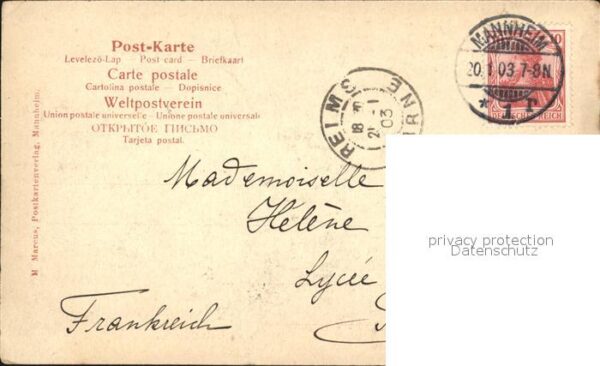 Post-Karte
Levelező-Lap — Post card — Briefkaart
Carte postale
Cartolina postale — Dopisnice
Weltpostverein
Union postale universelle — Unione postale universale
ОТКРЫТОЕ ПИСЬМО
Tarjeta postal.
M. Marcus, Postkartenverlag, Mannheim.
MANNHEIM
20.1.03.7-8N.
* 1 r
10
REIMS
18
21 -1
03
Mademoiselle
Helène
Lycée
Frankreich
privacy protection
Datenschutz